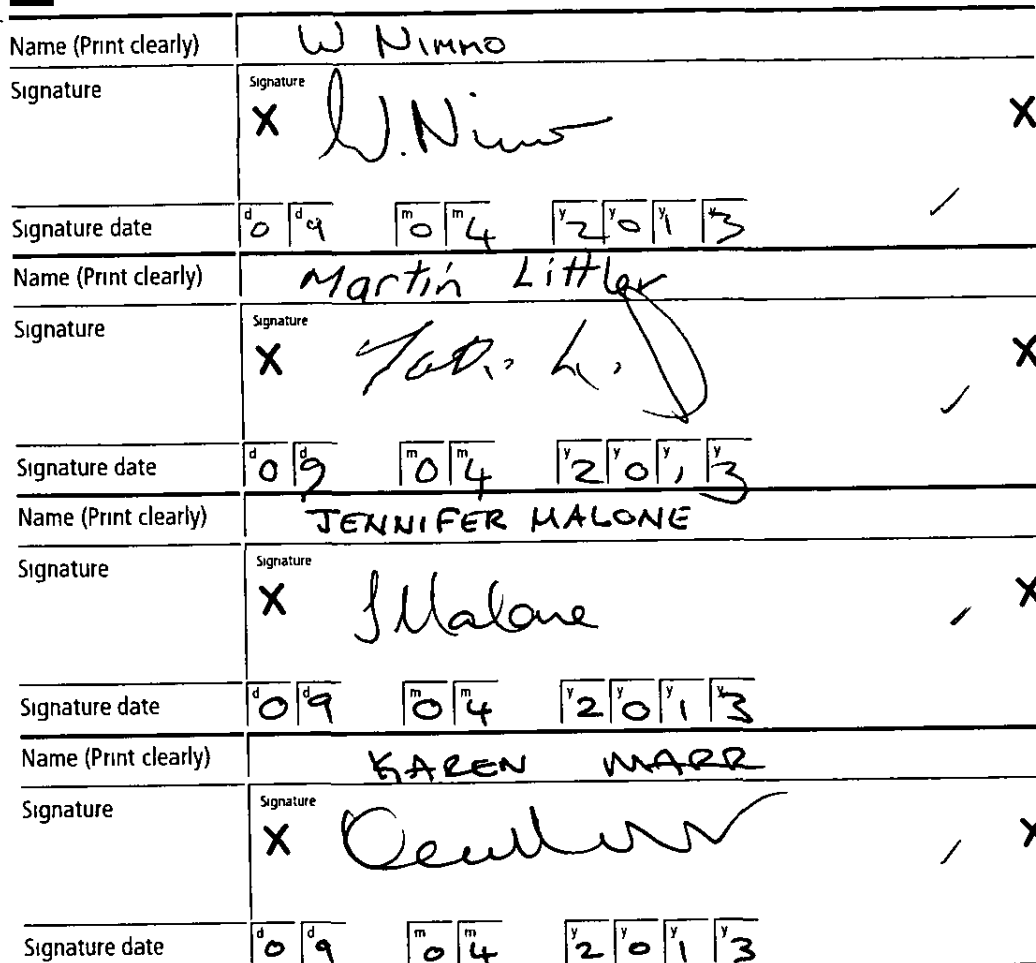 Name (Print clearly) W NIMMO
Signature Signature
X W.Nimmo X
Signature date d0 d9 m0 m4 y2 y0 y1 y3
Name (Print clearly) Martin Littler
Signature Signature
X X
Signature date d0 d9 m0 m4 y2 y0 y1 y3
Name (Print clearly) JENNIFER MALONE
Signature Signature
X J Malone X
Signature date d0 d9 m0 m4 y2 y0 y1 y3
Name (Print clearly) KAREN MARR
Signature Signature
X X
Signature date d0 d9 m0 m4 y2 y0 y1 y3